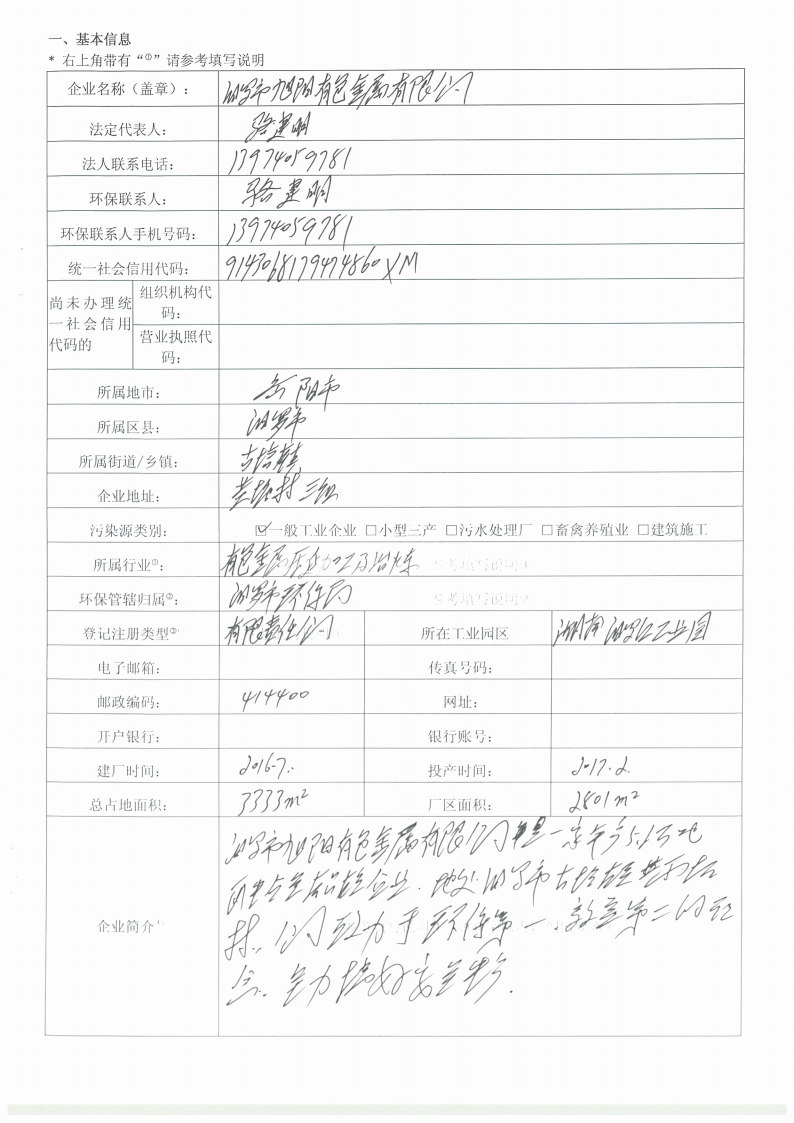 一、基本信息
* 右上角带有“①”请参考填写说明
企业名称（盖章）： 汨罗市旭阳有色金属有限公司
法定代表人： 骆建明
法人联系电话： 13974059781
环保联系人： 骆建明
环保联系人手机号码： 13974059781
统一社会信用代码： 9143068179474860XM
尚未办理统一社会信用代码的
组织机构代码：
营业执照代码：
所属地市： 岳阳市
所属区县： 汨罗市
所属街道/乡镇： 古培镇
企业地址： 村三组
污染源类别： ☑一般工业企业 □小型三产 □污水处理厂 □畜禽养殖业 □建筑施工
所属行业①： 有色金属压延加工及冶炼 参考填写说明
环保管辖归属②： 汨罗市环保局 参考填写说明
登记注册类型③： 有限责任公司 所在工业园区 湖南汨罗工业园
电子邮箱： 传真号码：
邮政编码： 414400 网址：
开户银行： 银行账号：
建厂时间： 2016.7. 投产时间： 2017.2.
总占地面积： 3333m² 厂区面积： 2801m²
企业简介
汨罗市旭阳有色金属有限公司是一家年产5.1万吨
企业．地处汨罗市古培镇
村．公司致力于环保第一、效益第二的理
念．全力搞好安全生产．